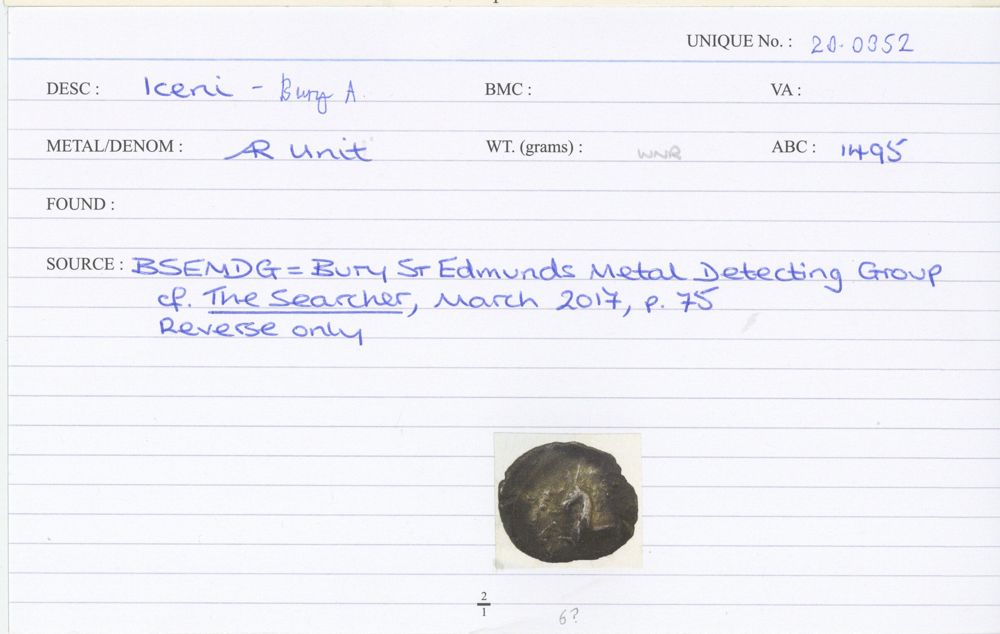 UNIQUE No. : 20.0352
DESC : Iceni - Bury A. BMC : VA :
METAL/DENOM : AR Unit WT. (grams) : WNR ABC : 1495
FOUND :
SOURCE : BSEMDG = Bury St Edmunds Metal Detecting Group
cf. The Searcher, March 2017, p. 75
Reverse only
2
1
6?